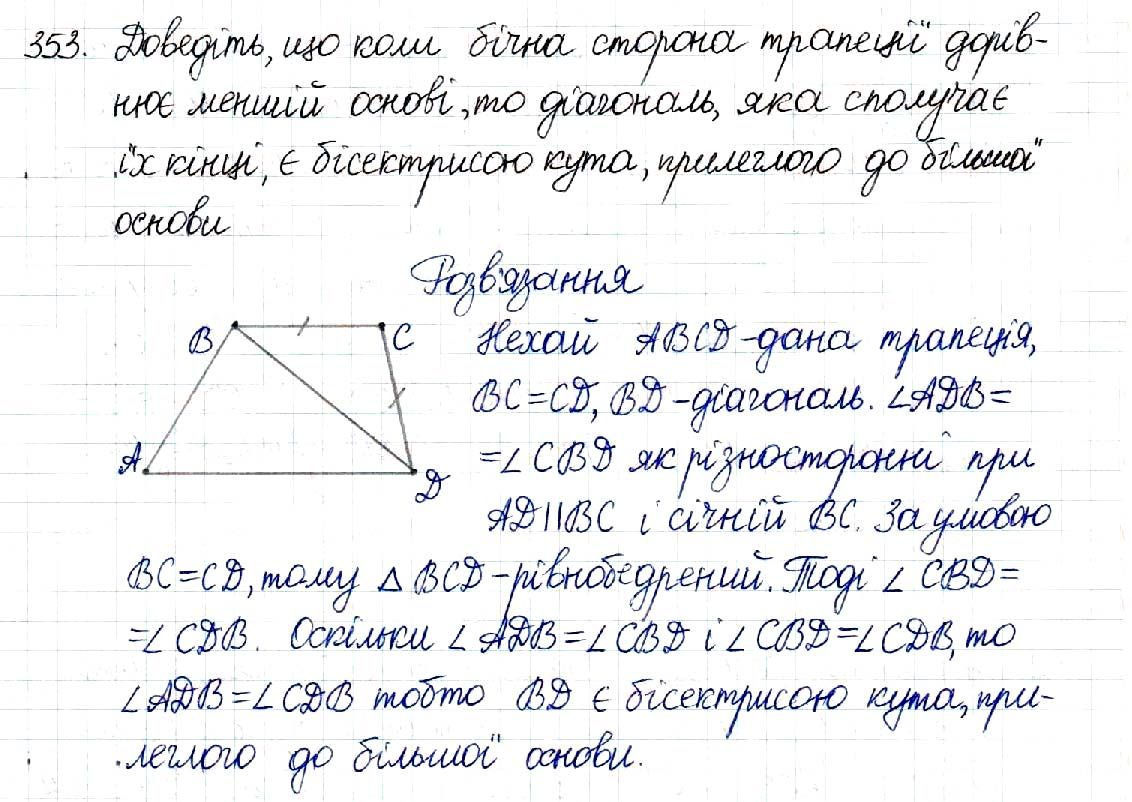 353. Доведіть, що коли бічна сторона трапеції дорів-
нює меншій основі, то діагональ, яка сполучає
їх кінці, є бісектрисою кута, прилеглого до більшої
основи
Розв'язання
B C
A D
Нехай ABCD-дана трапеція,
BC=CD, BD-діагональ. ∠ADB=
=∠CBD як різносторонні при
AD||BC і січній BC. За умовою
BC=CD, тому △BCD-рівнобедрений. Тоді ∠CBD=
=∠CDB. Оскільки ∠ADB=∠CBD і ∠CBD=∠CDB, то
∠ADB=∠CDB тобто BD є бісектрисою кута, при-
леглого до більшої основи.